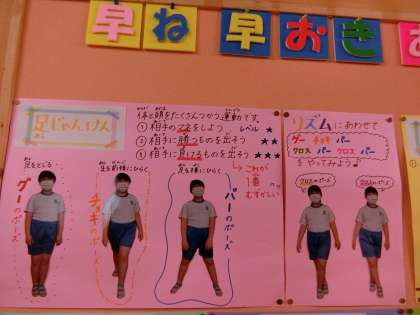 早ね早おき
足じゃんけん
体と頭をたくさんつかう運動です。
①相手のマネをしよう レベル★
②相手に勝つものを出そう ★★
③相手に負けるものを出そう ★★★
↳これが
1番
むずかしい
足をとじる
グーのポーズ
足を前後にひらく
チョキのポーズ
足を横にひらく
パーのポーズ
リズムにあわせて
グー チョキ パー
クロス パー クロス パー
をやってみよう♪
クロスのポーズ
クロスのポーズ